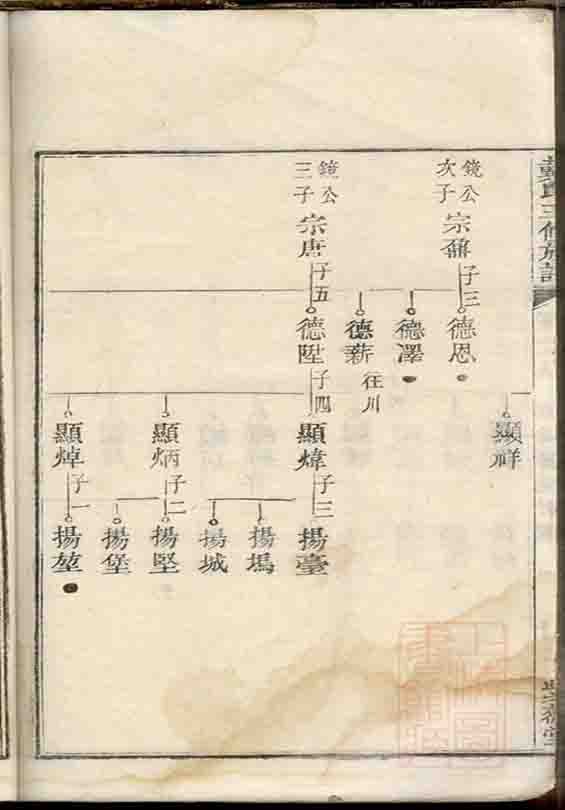 戴氏三修族譜
鏡公
次子
宗鼐
子三
德恩
德澤
德薪
往川
顯祥
鏡公
三子
宗唐
子五
德陞
子四
顯煒
子三
揚臺
揚塢
揚城
顯炳
子二
揚堅
揚堡
顯焯
子一
揚堃